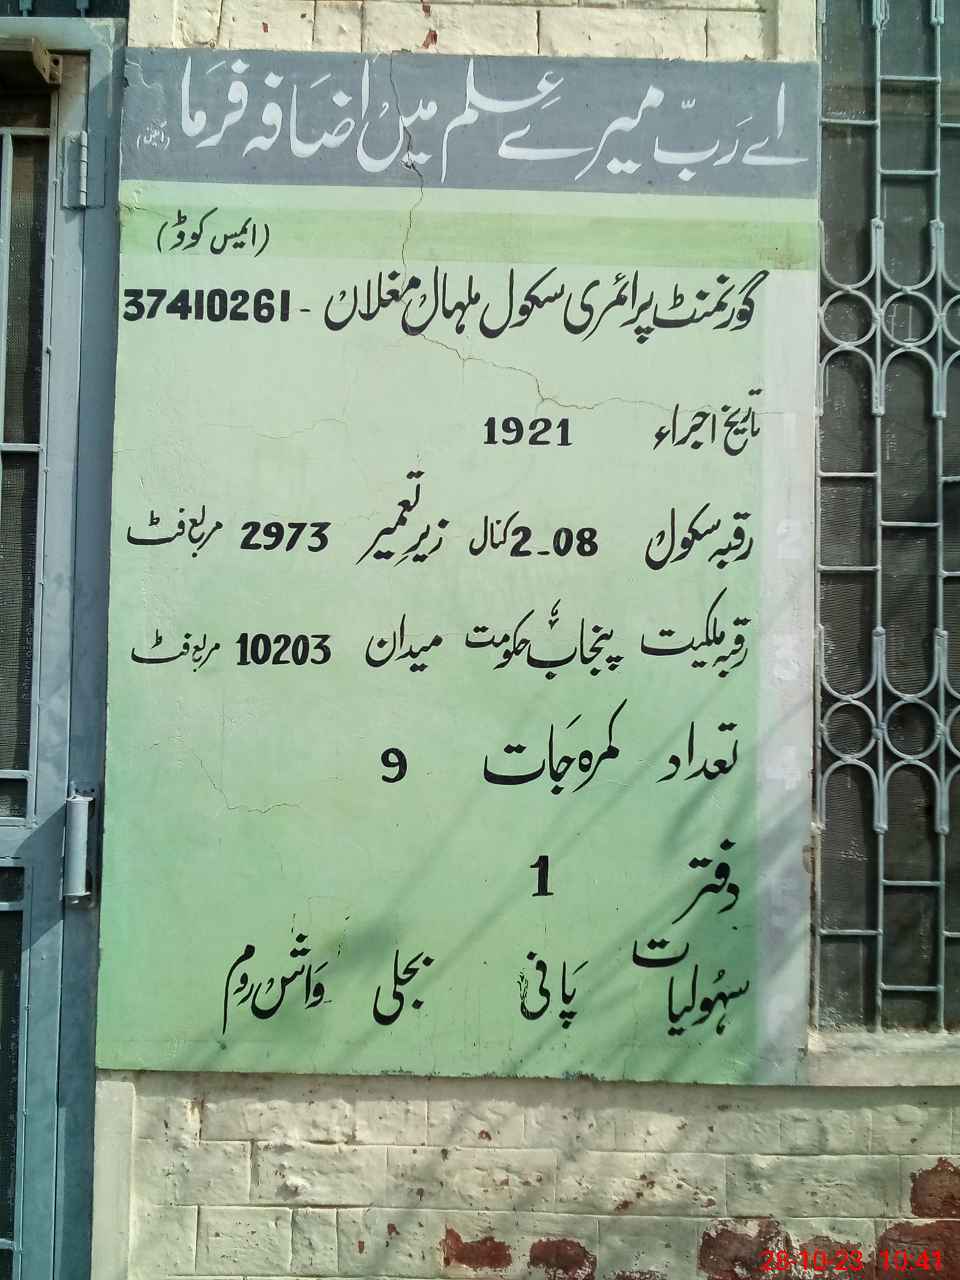 اے رَبّ میرے عِلم میں اضَافہ فرَما
(ایمیس کوڈ)
گورنمنٹ پرائمری سکول ملہال مغلاں - 37410261
تاریخ اجراء 1921
رقبہ سکول 2-08 کنال زیرِ تعمیر 2973 مربع فٹ
رقبہ ملکیت پنجاب حکومت میدان 10203 مربع فٹ
تعداد کمرہ جَات 9
دفتر 1
سہُولیات پَانی بجلی وَاش روم
28-10-23 10:41